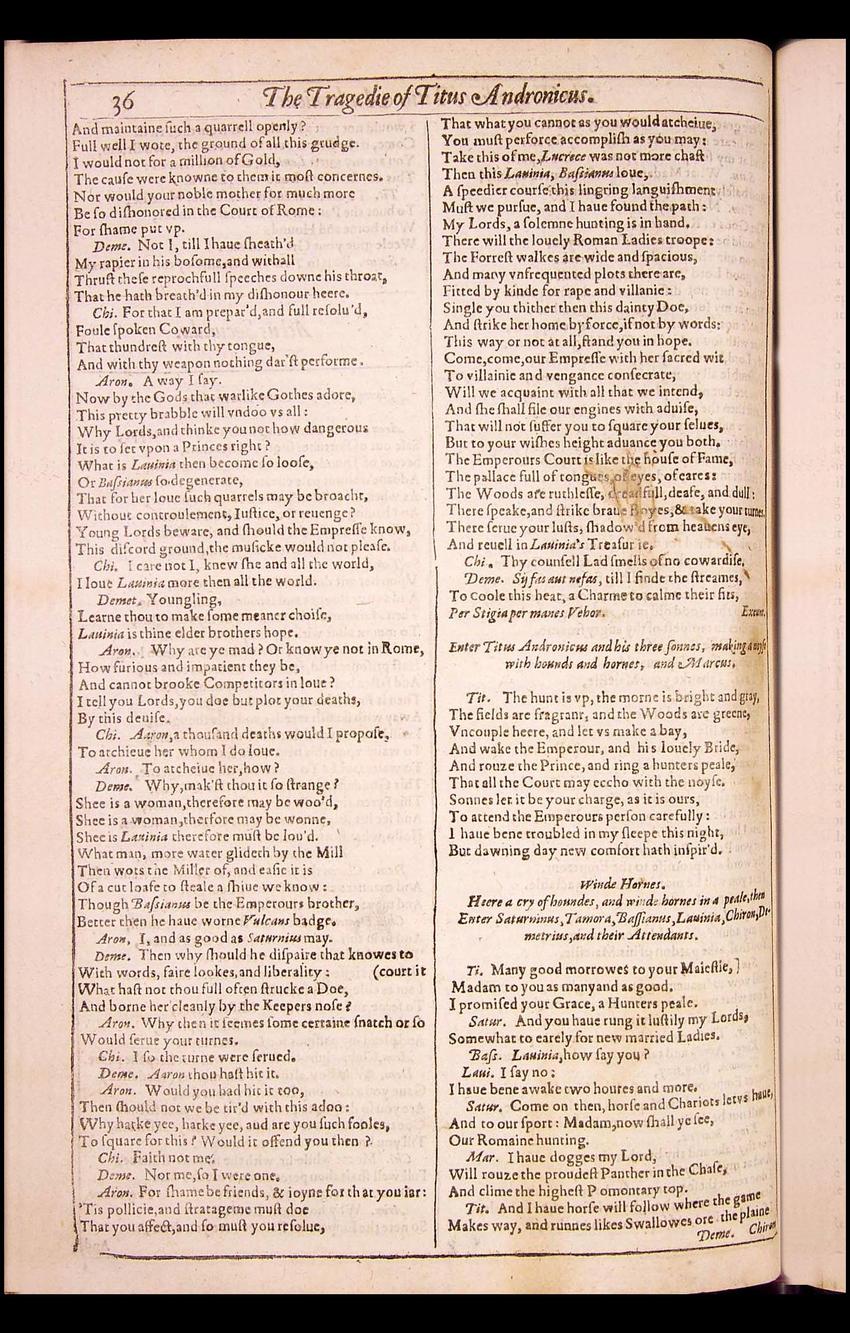 36
The Tragedie of Titus Andronicus.
And maintaine ſuch a quarrell openly?
Full well I wote, the ground of all this grudge.
I would not for a million of Gold,
The cauſe were knowne to them it moſt concernes.
Nor would your noble mother for much more
Be ſo diſhonored in the Court of Rome:
For ſhame put vp.
Deme. Not I, till I haue ſheath'd
My rapier in his boſome, and withall
Thruſt theſe reprochfull ſpeeches downe his throat,
That he hath breath'd in my diſhonour heere.
Chi. For that I am prepar'd, and full reſolu'd,
Foule ſpoken Coward,
That thundreſt with thy tongue,
And with thy weapon nothing dar'ſt performe.
Aron. A way I ſay.
Now by the Gods that warlike Gothes adore,
This pretty brabble will vndoo vs all:
Why Lords, and thinke you not how dangerous
It is to ſet vpon a Princes right?
What is Lauinia then become ſo looſe,
Or Baſsianus ſo degenerate,
That for her loue ſuch quarrels may be broacht,
Without controulement, Iuſtice, or reuenge?
Young Lords beware, and ſhould the Empreſſe know,
This diſcord ground, the muſicke would not pleaſe.
Chi. I care not I, knew ſhe and all the world,
I loue Lauinia more then all the world.
Demet. Youngling,
Learne thou to make ſome meaner choiſe,
Lauinia is thine elder brothers hope.
Aron. Why are ye mad? Or know ye not in Rome,
How furious and impatient they be,
And cannot brooke Competitors in loue?
I tell you Lords, you doe but plot your deaths,
By this deuiſe.
Chi. Aaron, a thouſand deaths would I propoſe,
To atchieue her whom I do loue.
Aron. To atcheiue her, how?
Deme. Why, mak'ſt thou it ſo ſtrange?
Shee is a woman, therefore may be woo'd,
Shee is a woman, therfore may be wonne,
Shee is Lauinia therefore muſt be lou'd.
What man, more water glideth by the Mill
Then wots the Miller of, and eaſie it is
Of a cut loafe to ſteale a ſhiue we know:
Though Baſsianus be the Emperours brother,
Better then he haue worne Vulcans badge.
Aron, I, and as good as Saturnius may.
Deme. Then why ſhould he diſpaire that knowes to
With words, faire lookes, and liberality: (court it
What haſt not thou full often ſtrucke a Doe,
And borne her cleanly by the Keepers noſe?
Aron. Why then it ſeemes ſome certaine ſnatch or ſo
Would ſerue your turnes.
Chi. I ſo the turne were ſerued.
Deme. Aaron thou haſt hit it.
Aron. Would you had hit it too,
Then ſhould not we be tir'd with this adoo:
Why harke yee, harke yee, aud are you ſuch fooles,
To ſquare for this? Would it offend you then?
Chi. Faith not me.
Deme. Nor me, ſo I were one.
Aron. For ſhame be friends, & ioyne for that you iar:
'Tis pollicie, and ſtratageme muſt doe
That you affect, and ſo muſt you reſolue,
That what you cannot as you would atcheiue,
You muſt perforce accompliſh as you may:
Take this of me, Lucrece was not more chaſt
Then this Lauinia, Baſsianus loue,
A ſpeedier courſe this lingring languiſhment
Muſt we purſue, and I haue found the path:
My Lords, a ſolemne hunting is in hand.
There will the louely Roman Ladies troope:
The Forreſt walkes are wide and ſpacious,
And many vnfrequented plots there are,
Fitted by kinde for rape and villanie:
Single you thither then this dainty Doe,
And ſtrike her home by force, if not by words:
This way or not at all, ſtand you in hope.
Come, come, our Empreſſe with her ſacred wit
To villainie and vengance conſecrate,
Will we acquaint with all that we intend,
And ſhe ſhall file our engines with aduiſe,
That will not ſuffer you to ſquare your ſelues,
But to your wiſhes height aduance you both.
The Emperours Court is like the houſe of Fame,
The pallace full of tongues, of eyes, of eares:
The Woods are ruthleſſe, dreadfull, deafe, and dull:
There ſpeake, and ſtrike braue Boyes, & take your turnes.
There ſerue your luſts, ſhadow'd from heauens eye,
And reuell in Lauinia's Treaſurie.
Chi. Thy counſell Lad ſmells of no cowardiſe.
Deme. Sij fas aut nefas, till I finde the ſtreames,
To Coole this heat, a Charme to calme their fits,
Per Stigia per manes Vehor. Exeunt.
Enter Titus Andronicus and his three ſonnes, making a noyſe
with hounds and hornes, and Marcus.
Tit. The hunt is vp, the morne is bright and gray,
The fields are fragrant, and the Woods are greene,
Vncouple heere, and let vs make a bay,
And wake the Emperour, and his louely Bride,
And rouze the Prince, and ring a hunters peale,
That all the Court may eccho with the noyſe.
Sonnes let it be your charge, as it is ours,
To attend the Emperours perſon carefully:
I haue bene troubled in my ſleepe this night,
But dawning day new comfort hath inſpir'd.
Winde Hornes.
Heere a cry of houndes, and winde hornes in a peale, then
Enter Saturninus, Tamora, Baſſianus, Lauinia, Chiron, De-
metrius, and their Attendants.
Ti. Many good morrowes to your Maieſtie,
Madam to you as many and as good.
I promiſed your Grace, a Hunters peale.
Satur. And you haue rung it luſtily my Lords,
Somewhat to earely for new married Ladies.
Baſſ. Lauinia, how ſay you?
Laui. I ſay no:
I haue bene awake two houres and more.
Satur. Come on then, horſe and Chariots let vs haue,
And to our ſport: Madam, now ſhall ye ſee,
Our Romaine hunting.
Mar. I haue dogges my Lord,
Will rouze the proudeſt Panther in the Chaſe,
And clime the higheſt P omontary top.
Tit. And I haue horſe will follow where the game
Makes way, and runnes likes Swallowes ore the plaine
Deme. Chiron